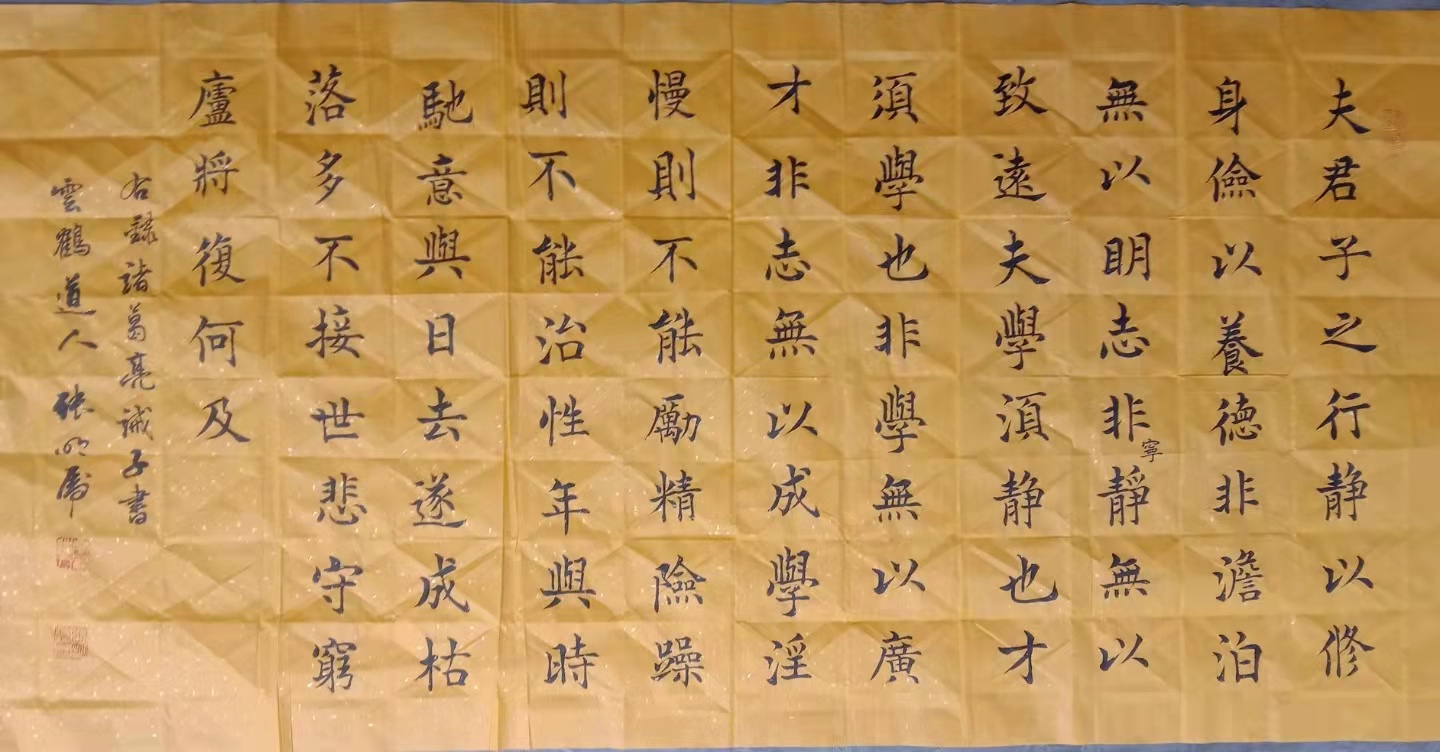 夫君子之行静以修
身儉以養德非澹泊
無以明志非寧靜無以
致遠夫學須静也才
須學也非學無以廣
才非志無以成學淫
慢則不能勵精險躁
則不能治性年與時
馳意與日去遂成枯
落多不接世悲守窮
廬將復何及
右錄諸葛亮誡子書
雲鶴道人張